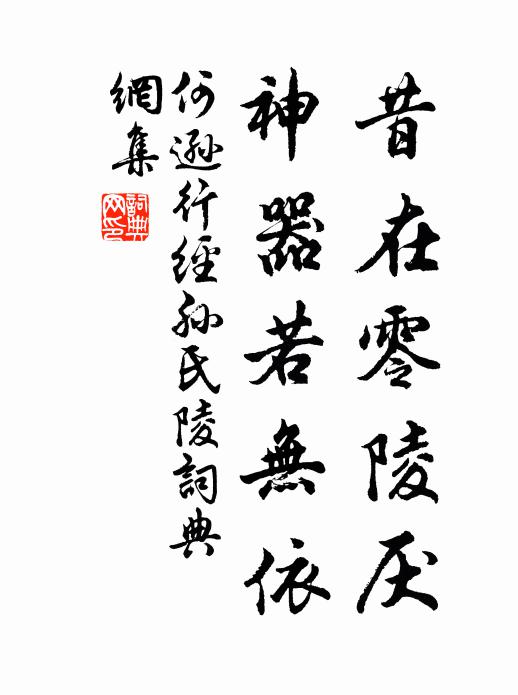 昔在零陵厌
神器若無依
何遜行經孙氏陵詞典
網集
詞典網印